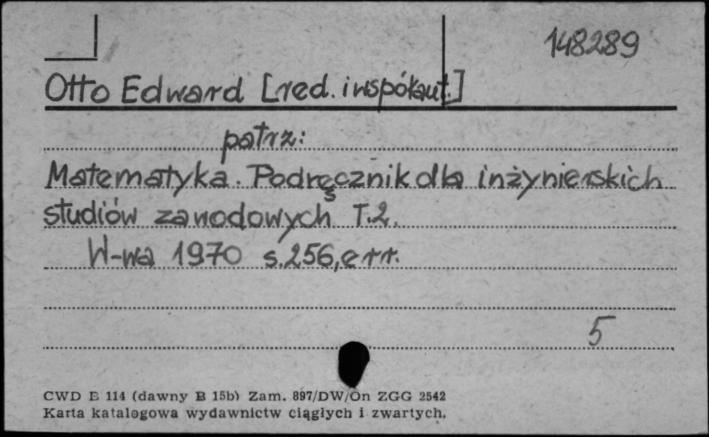 148289
Otto Edward [red. i współaut.]
patrz:
Matematyka. Podręcznik dla inżynierskich
studiów zawodowych T.2.
W-wa 1970 s.256, err.
5
CWD E 114 (dawny B 15b) Zam. 897/DW/On ZGG 2542
Karta katalogowa wydawnictw ciągłych i zwartych.